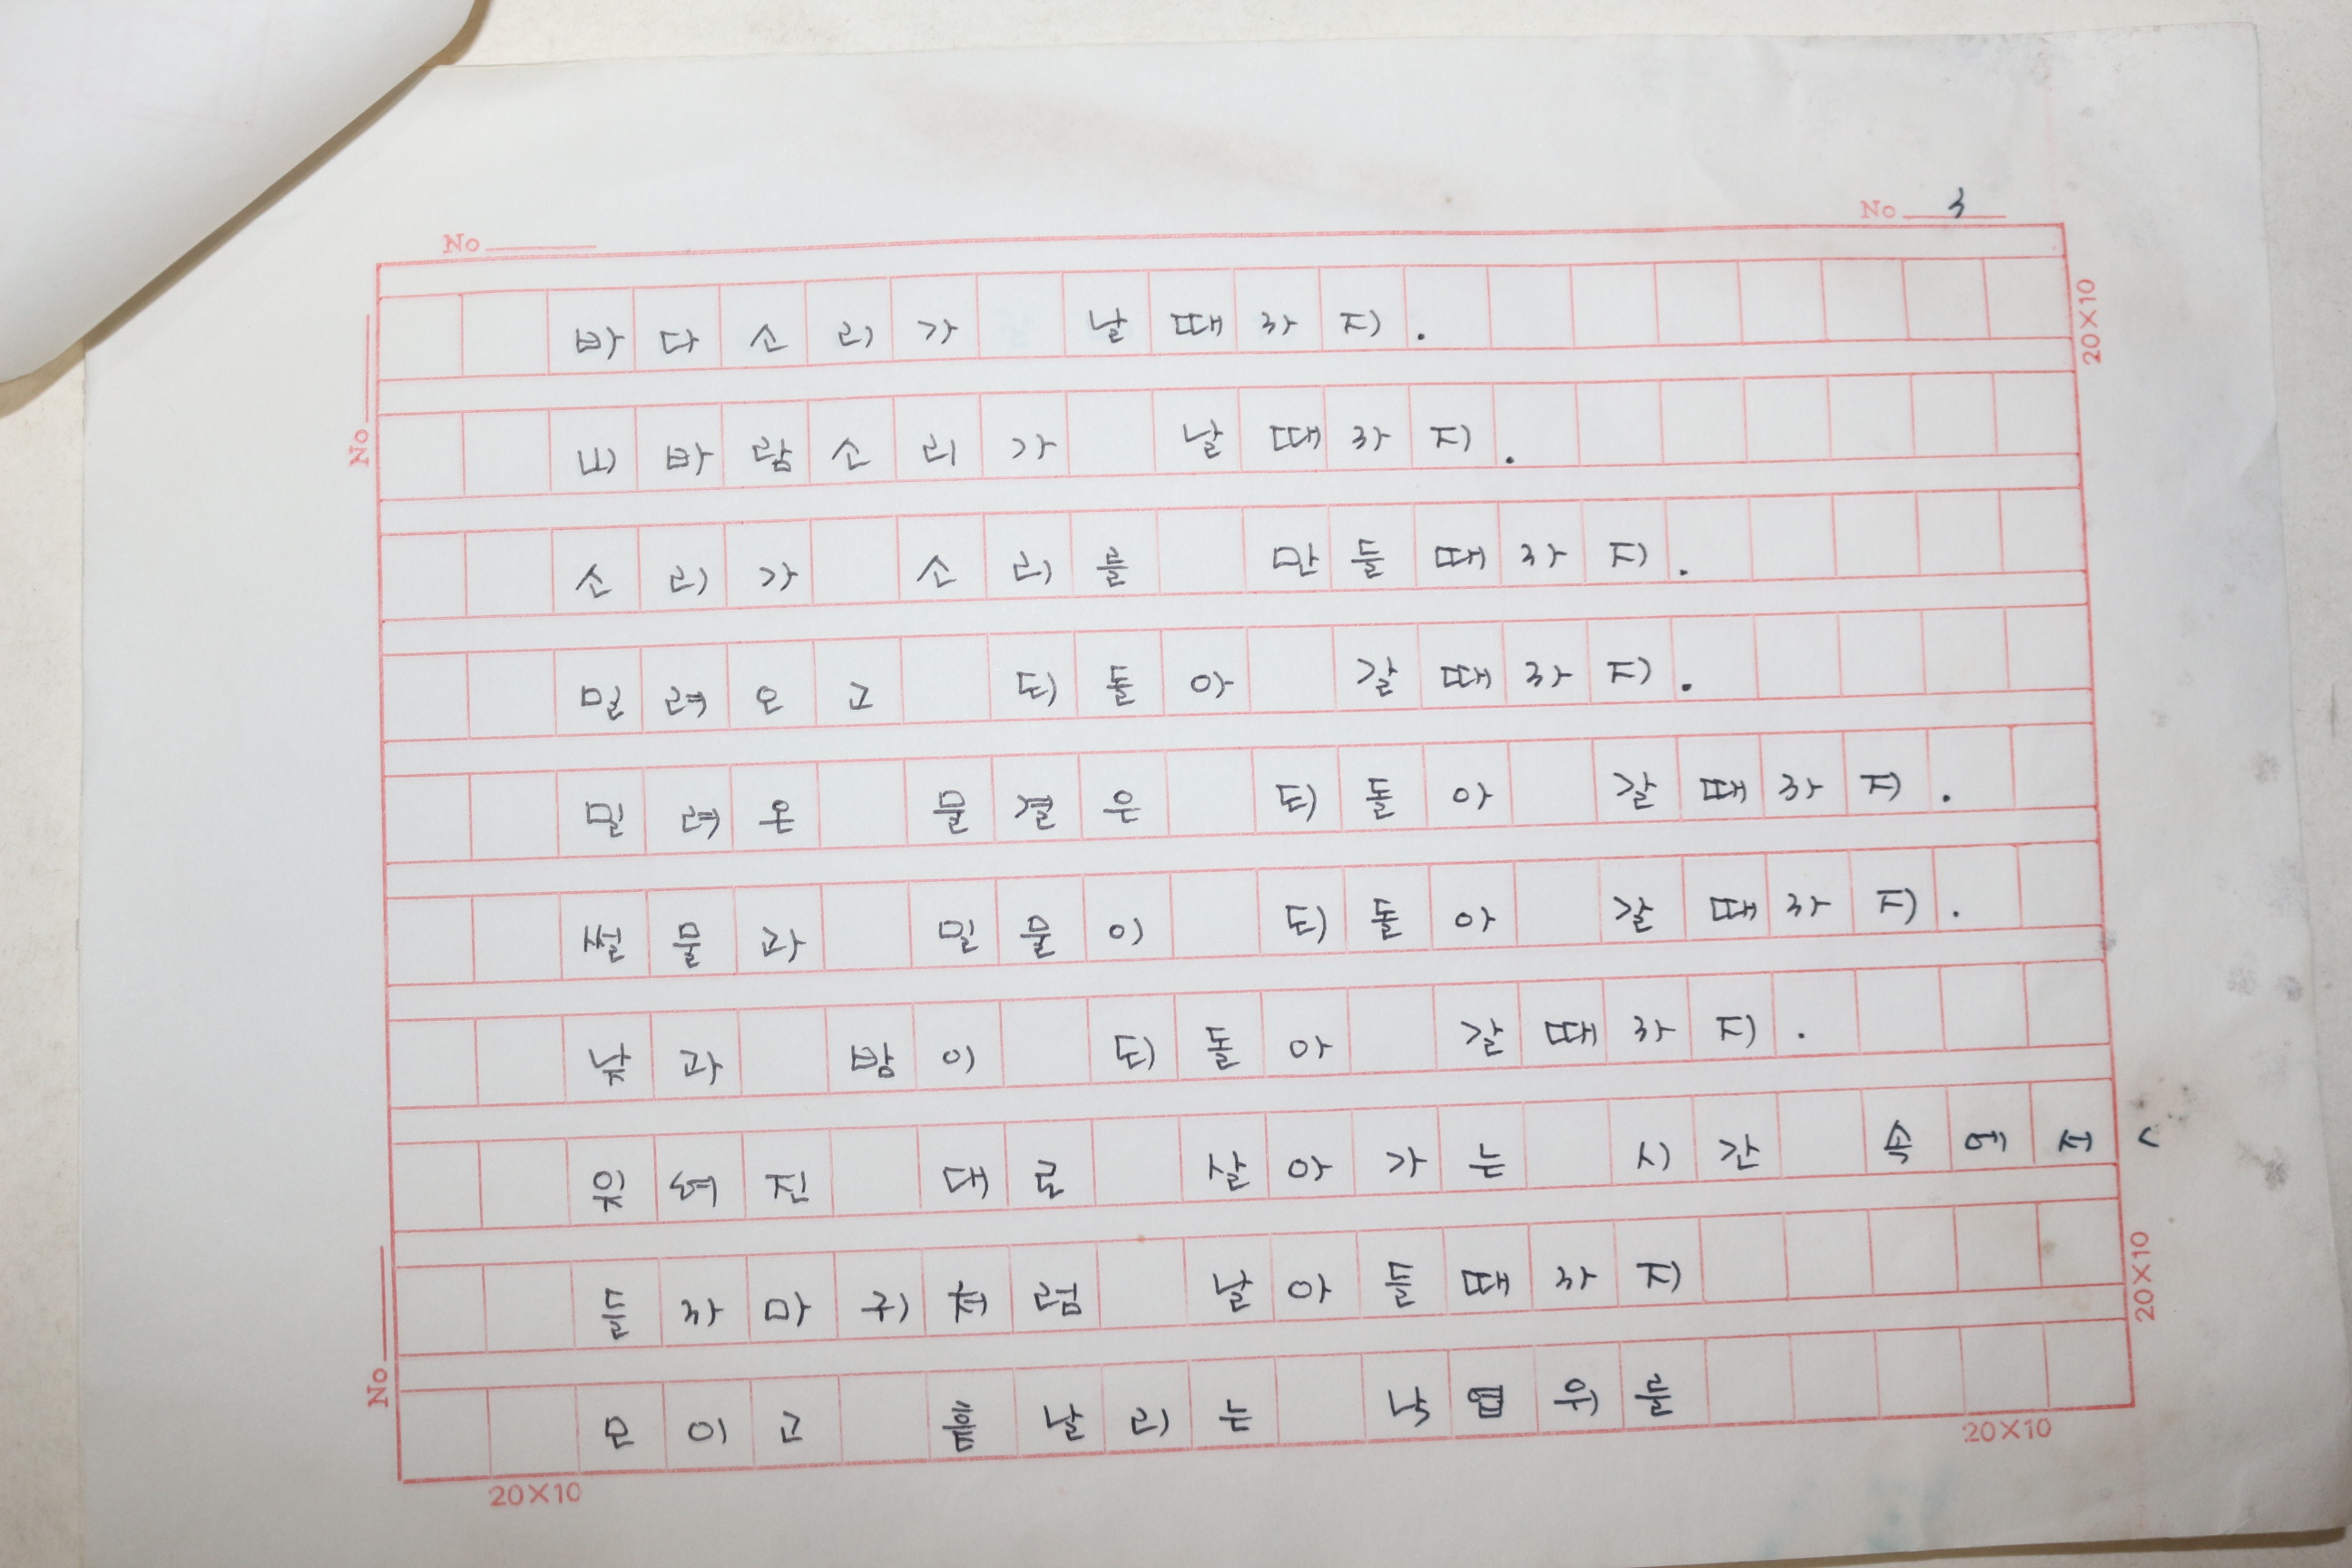 No
No 3
바다소리가 날때까지.
비바람소리가 날때까지.
소리가 소리를 만들때까지.
밀려오고 되돌아 갈때까지.
밀려온 물결은 되돌아 갈때까지.
썰물과 밀물이 되돌아 갈때까지.
낮과 밤이 되돌아 갈때까지.
잊혀진 대로 살아가는 시간 속에서
들까마귀처럼 날아들때까지
모이고 흩날리는 낙엽위를
20×10
20×10
No
No
20×10
20×10